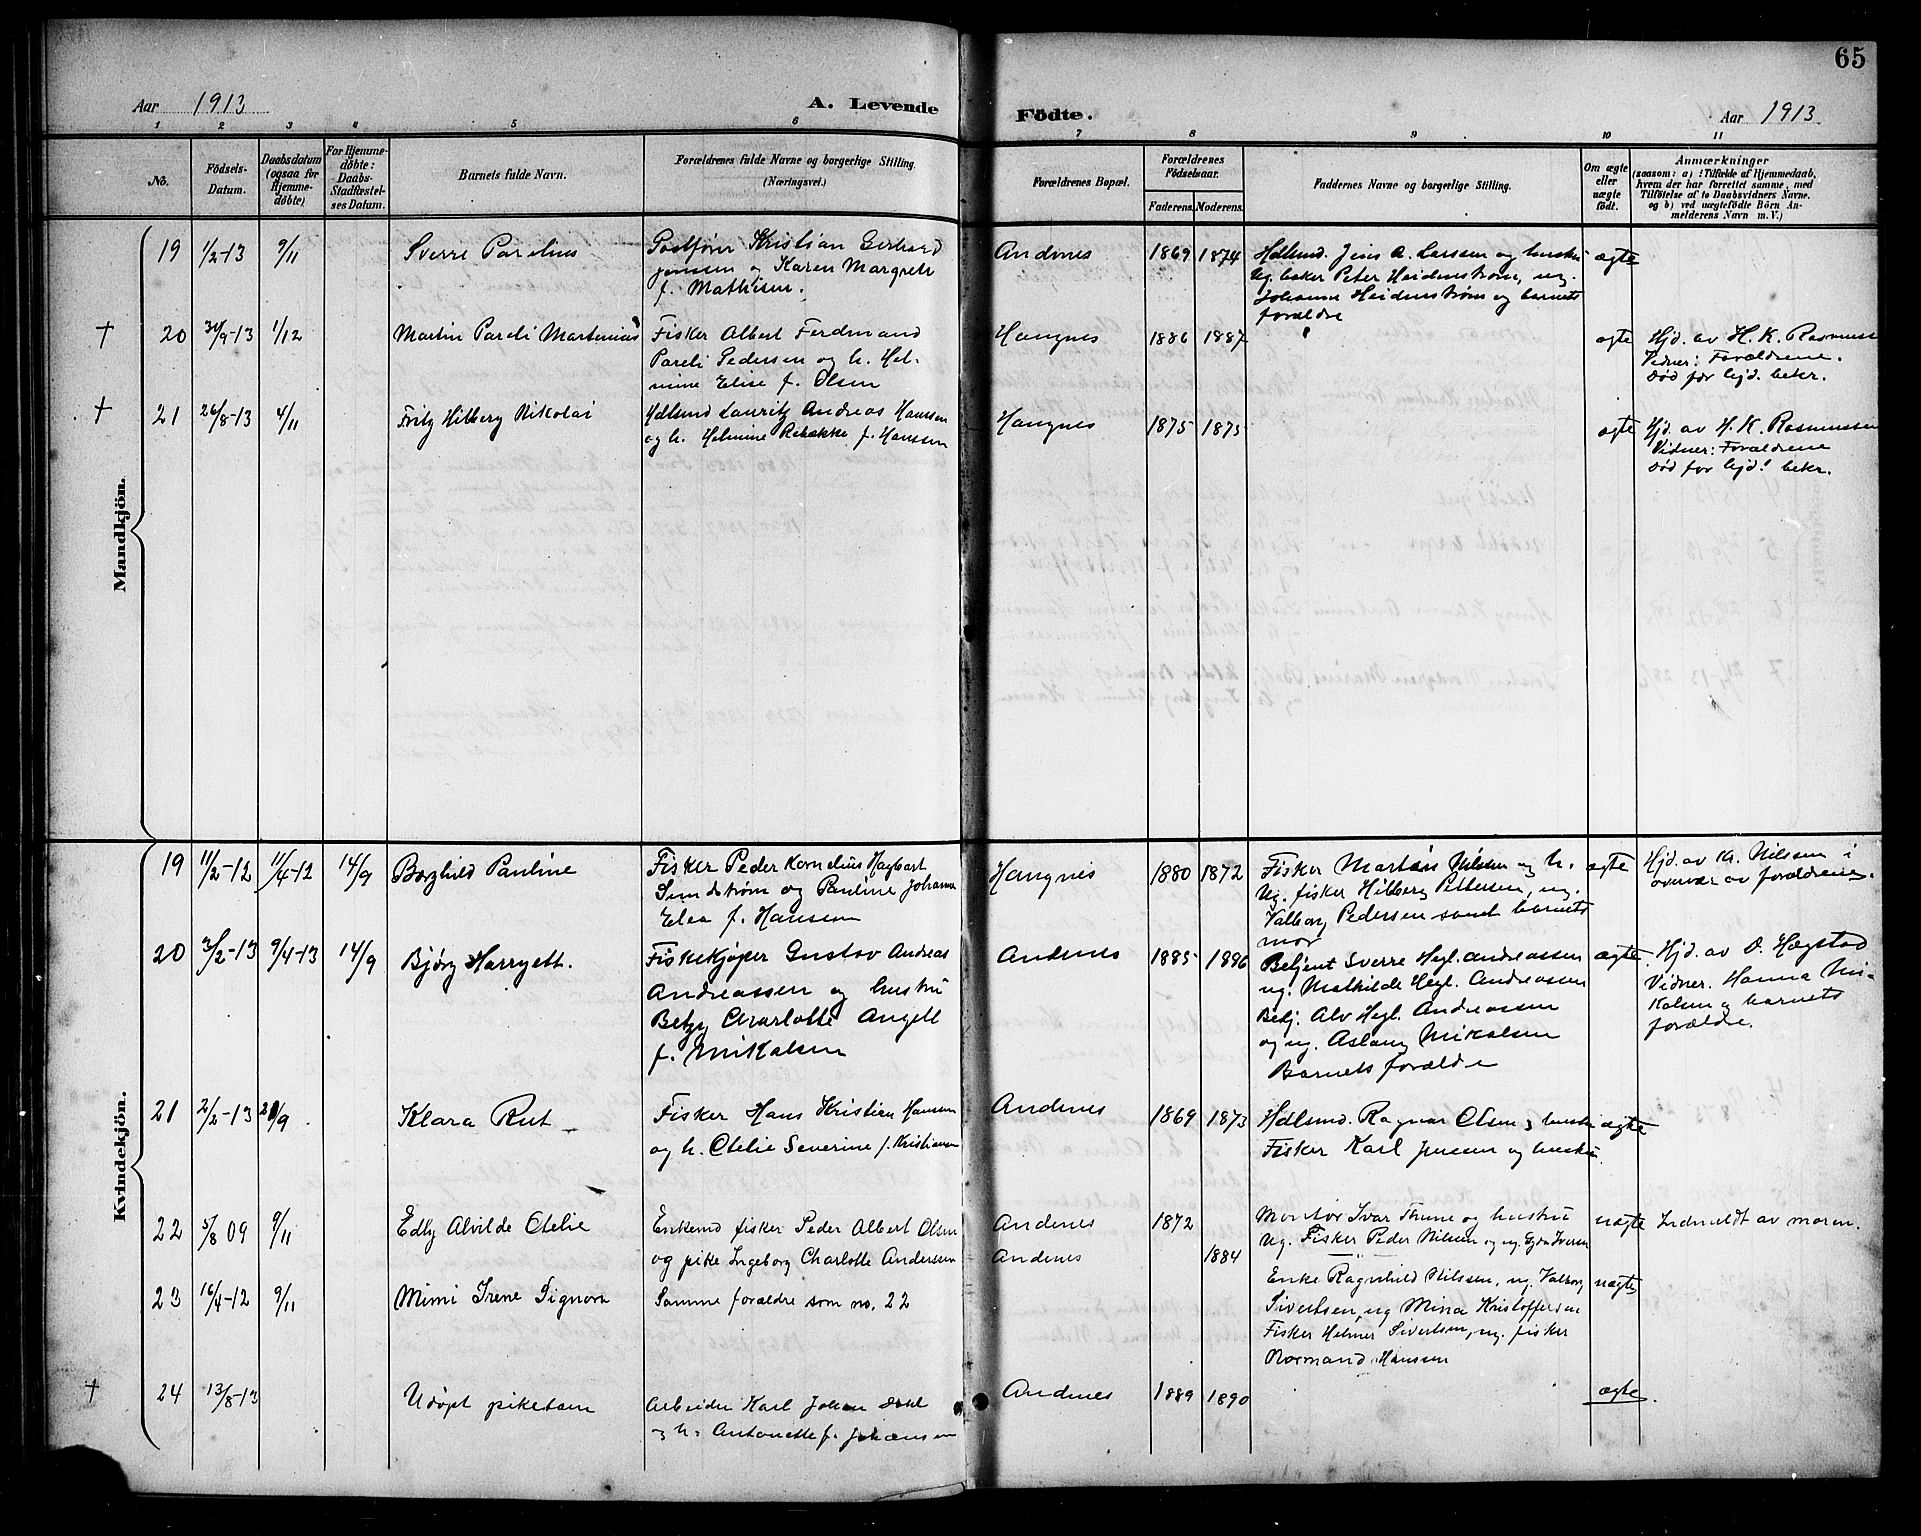 65
Aar 1913 A. Levende Födte. Aar 1913
1 2 3 4 5 6 7 8 9 10 11
No.
Födsels-
Datum.
Daabsdatum
(ogsaa for
Hjemme-
döbte)
For Hjemme-
döbte:
Daabs-
Stadfæstel-
ses Datum.
Barnets fulde Navn.
Forældrenes fulde Navne og borgerlige Stilling.
(Næringsvei.)
Forældrenes Bopæl.
Forældrenes
Födselsaar.
Faderens. Moderens.
Faddernes Navne og borgerlige Stilling.
Om ægte
eller
uægte
födt.
Anmærkninger
(saasom: a) i Tilfælde af Hjemmedaab,
hvem der har forrettet samme, med
Tilföielse af to Daabsvidners Navne.
og b) ved uægtefödte Börn An-
melderens Navn m. V.)
Mandkjön.
19 1/2-13 9/11 Sverre Parelius
Kristian Gerhard
Jenssen og Karen Margrete
f. Mathisen.
Andenes 1869 1874
Hdlsmd. Jens A. Larssen og hustru
Ug. baker Peter Heidenstrøm, ug.
Johanna Heidenstrøm og barnets
forældre
ægte
† 20 30/9-13 1/12 Martin Pareli Martinius
Fisker Albert Ferdinand
Pareli Pedersen og h. Hel-
mine Elise f. Olsen
Haugnes 1886 1887 ægte
Hjd. av H. K. Rasmussen
Vidner: Forældrene.
død før hjd. bekr.
† 21 26/8-13 4/11 Fritz Hilberg Nikolai
Hdlsmd Lauritz Andreas Hanssen
og h. Helmine Rebekke f. Hansen
Haugnes 1875 1875 ægte
Hjd. av H. K. Rasmussen
Vidner: Forældrene
død før hjd. bekr.
Kvindekjön.
19 11/2-12 11/4-12 14/9 Borghild Pauline
Fisker Peder Kornelius Hagbart
Sundstrøm og Pauline Johanna
Elea f. Hansen
Haugnes 1880 1872
Fisker Martin Nilsen og h.
Ug. fisker Hilberg Pettersen, ug.
Valborg Pedersen samt barnets
mor
ægte
Hjd. av Kr. Nilsen i
overvær av forældrene.
20 3/2-13 9/4-13 14/9 Bjørg Harryett.
Fiskekjøper Gustav Andreas
Andreassen og hustru
Betzy Charlotte Angell
f. Mikalsen
Andenes 1885 1886
Betjent Sverre Hegl. Andreassen
ug. Mathilde Hegl. Andreassen
Betj. Alv Hegl. Andreassen
og ug. Aslaug Mikalsen
Barnets forældre
ægte
Hjd. av O. Hægstad
Vidner. Hanna Mi-
kalsen og barnets
forældre.
21 2/2-13 21/9 Klara Rut
Fisker Hans Kristian Hansen
og h. Otelie Severine f. Kristiansen
Andenes 1869 1873
Hdlsmd. Ragnar Olsen og hustru
Fisker Karl Jenssen og hustru.
ægte
22 5/8 09 9/11 Edly Alvilde Otelie
Enkemd fisker Peder Albert Olsen
og pike Ingeborg Charlotte Anderssen
Andenes 1872
Andenes 1884
Montør Ivar Thune og hustru
Ug. Fisker Peder Nilsen og ug. Iversen
uægte Indmeldt av moren.
23 16/4-12 9/11 Mimi Irene Signora
Samme forældre som no. 22
Enke Ragnhild Nilssen, ug. Valborg
Sivertsen, ug Mina Kristoffersen
Fisker Helmer Sivertsen, ug. fisker
Normand Hanssen
uægte
† 24 13/8-13 Udøpt pikebarn
Arbeider Karl Johan
og h. Antonette f. Johansen
Andenes 1889 1890 ægte.